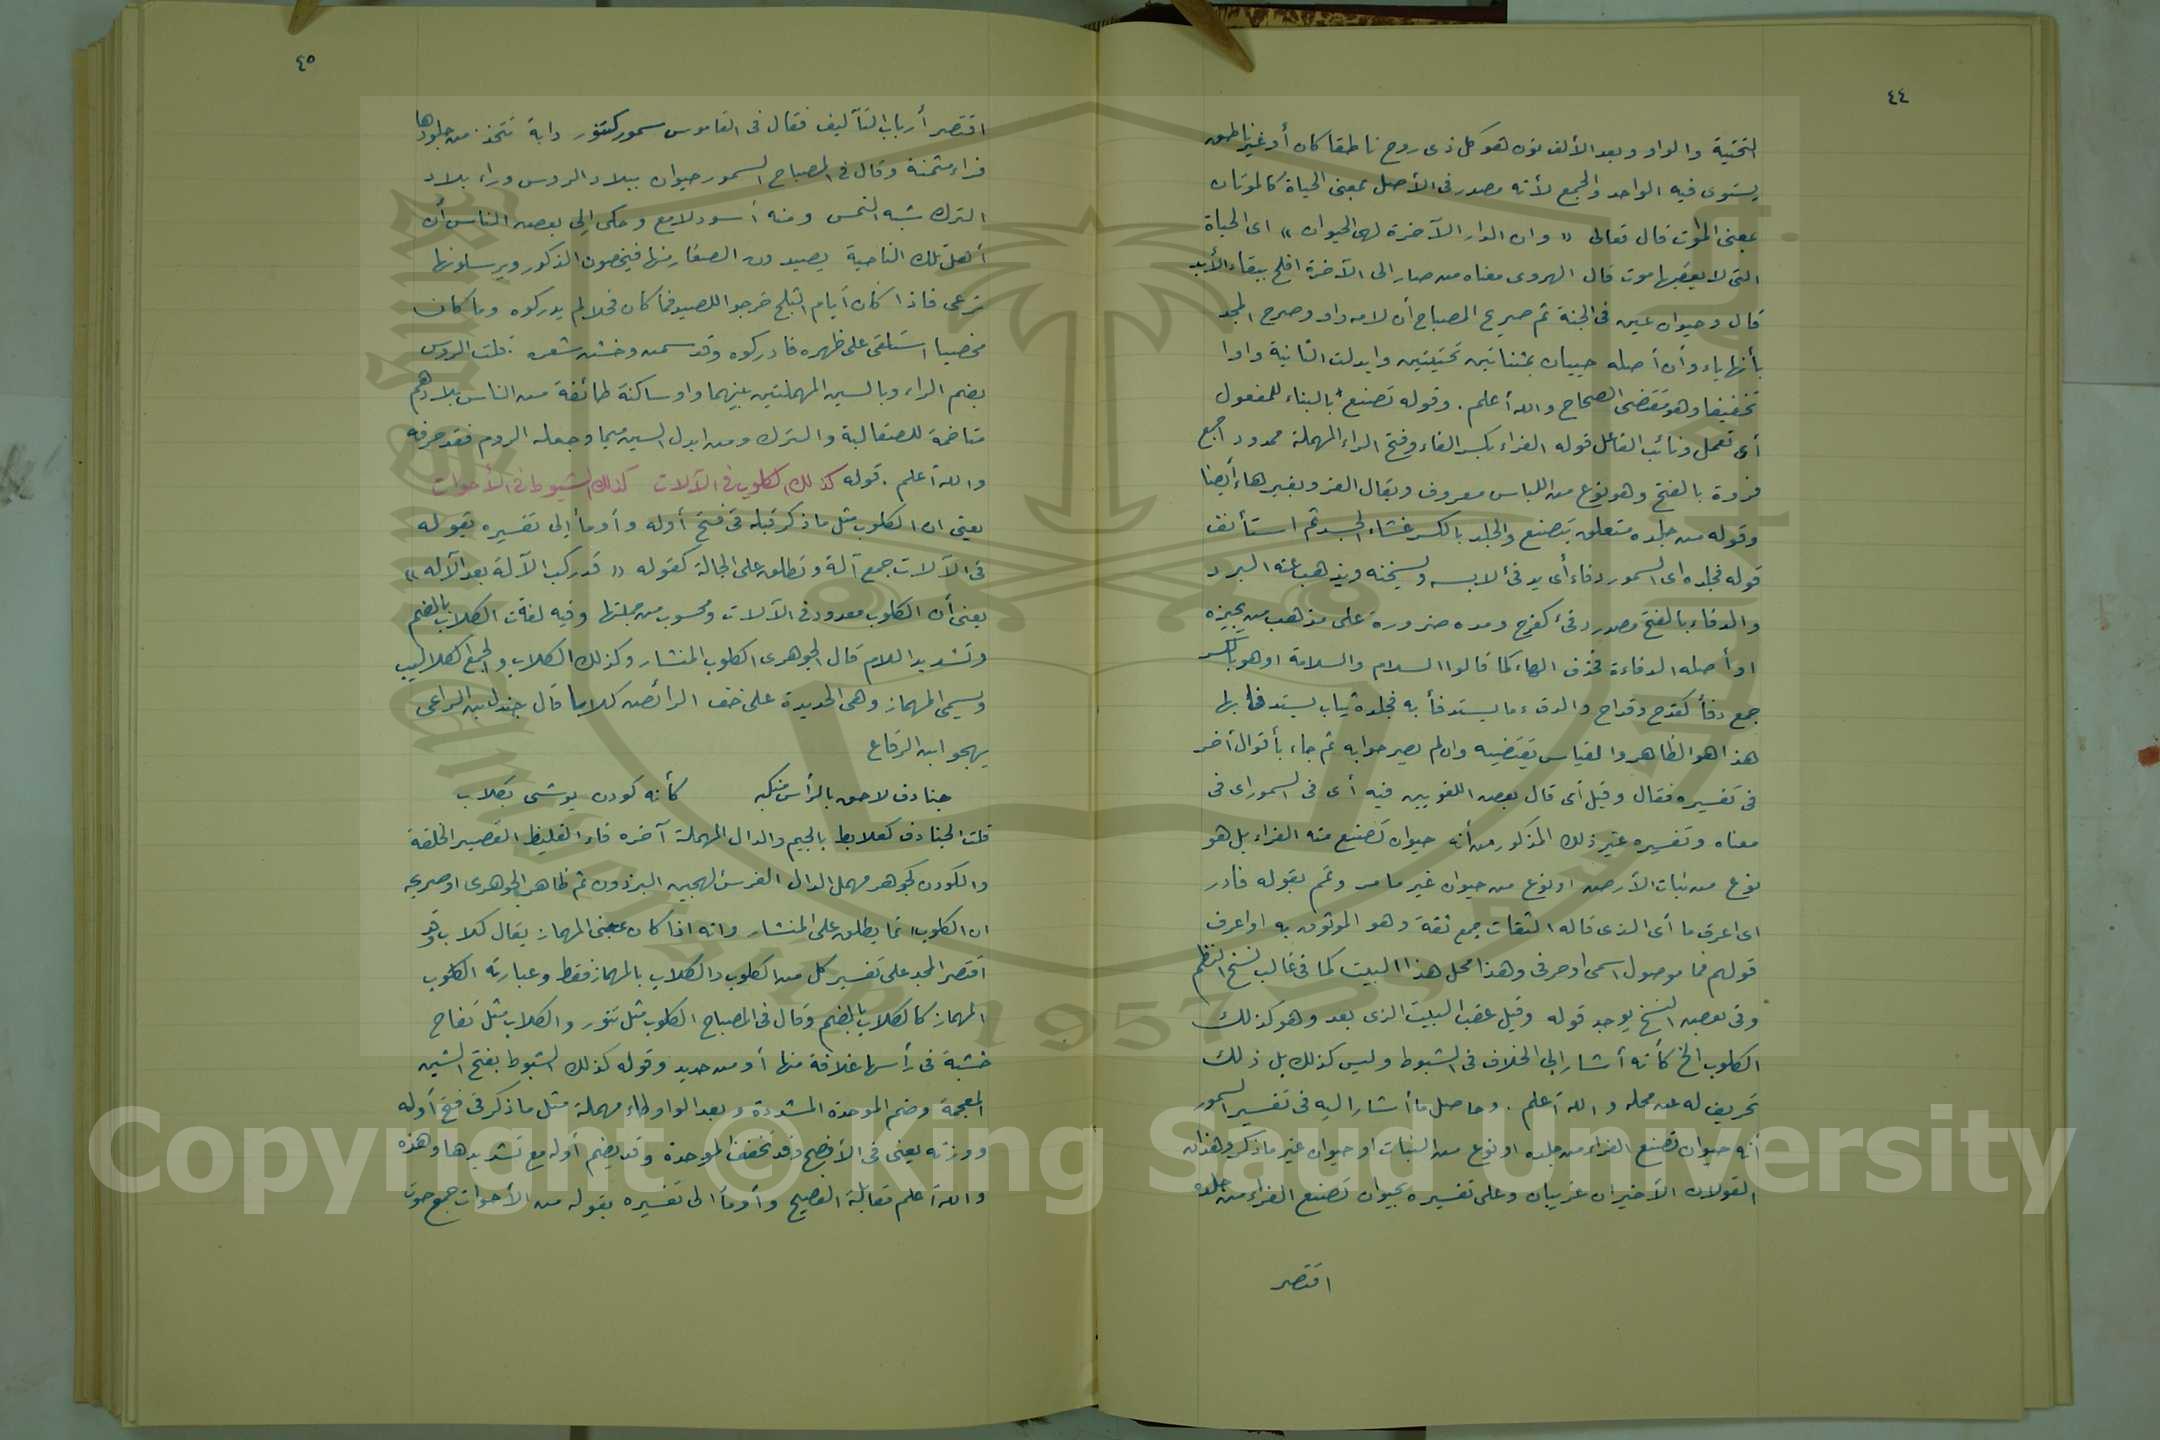 ٤٤
التحتية والواو وبعد الألف نون هو كل ذى روح ناطقا كان أو غير ناطق
يستوى فيه الواحد والجمع لأنه مصدر فى الأصل بمعنى الحياة كالموتان
بمعنى الموت قال تعالى « وان الدار الآخرة لهى الحيوان » اى الحياة
التى لا يعقبها موت قال الهروى معناه من صار الى الآخرة افلح ببقاء الأبد
قال وحيوان عين فى الجنة ثم صريح المصباح أن لامه واو وصرح المجد
بأنها ياء وأن أصله حييان بمثناتين تحتيتين وابدلت الثانية واوا
تخفيفا وهو مقتضى الصحاح والله أعلم . وقوله تصنع بالبناء للمفعول
أى تعمل ونائب الفاعل قوله الفراء بكسر الفاء وفتح الراء المهملة ممدود اجمع
فروة بالفتح وهو نوع من اللباس معروف ويقال الفرو بغير هاء أيضا
وقوله من جلده متعلق بتصنع والجلد بالكسر غشاء الجسد ثم استأنف
قوله فجلده اى السمور دفاء أى يدفئ لابسه ويسخنه ويذهب عنه البرد
والدفاء بالفتح مصدر دفئ كفرح ومده ضرورة على مذهب من يجيزه
او أصله الدفاءة فحذف الهاء كما قالوا السلام والسلامة او هو بالكسر
جمع دفأ كقدح وقداح والدفء ما يستدفأ به فجلده ثياب يستدفأ بها
هذا هو الظاهر والقياس يقتضيه وان لم يصرحوا به ثم جاء بأقوال أخر
فى تفسيره فقال وقيل أى قال بعض اللغويين فيه أى فى السمور اى فى
معناه وتفسيره غير ذلك المذكور من أنه حيوان تصنع منه الفراء بل هو
نوع من نبات الأرض او نوع من حيوان غير ما مر وتمم بقوله فادر
اى اعرف ما أى الذى قاله الثقات جمع ثقة وهو الموثوق به او اعرف
قولهم فما موصول اسمى او حرفى وهذا محل هذا البيت كما فى غالب نسخ النظم
وفى بعض النسخ يوجد قوله وقيل عقب البيت الذى بعد وهو كذلك
الكلوب الخ كأنه أشار إلى الخلاف فى الشبوط وليس كذلك بل ذلك
تحريف له عن محله والله أعلم . وحاصل ما أشار اليه فى تفسير السمور
أنه حيوان تصنع الفراء من جلده او نوع من النبات او حيوان غير ما ذكر وهذان
القولان الأخيران غريبان وعلى تفسيره بحيوان تصنع الفراء من جلده
اقتصر
٤٥
اقتصر أرباب التآليف فقال فى القاموس سمور كتنور دابة تتخذ من جلودها
فراء مثمنة وقال فى المصباح السمور حيوان ببلاد الروس وراء بلاد
الترك شبه النمس ومنه أسود لامع وحكى لى بعض الناس أن
أهل تلك الناحية يصيدون الصغار منها فيخصون الذكور ويرسلونها
ترعى فاذا كان أيام الثلج خرجوا للصيد فما كان فحلا لم يدركوه وما كان
مخصيا استلقى على ظهره فادركوه وقد سمن وخشن شعره . قلت الروس
بضم الراء وبالسين المهملتين بينهما واو ساكنة طائفة من الناس بلادهم
متاخمة للصقالبة والترك ومن ابدل السين ميما وجعله الروم فقد حرفه
والله أعلم . قوله كذلك الكلوب فى الآلات كذلك الشبوط فى الأحوات
يعنى ان الكلوب مثل ما ذكر قبله فى فتح أوله وأومأ إلى تفسيره بقوله
فى الآلات جمع آلة وتطلق على الحالة كقوله « قد ركب الآلة بعد الآله »
يعنى أن الكلوب معدود فى الآلات ومحسوب من جملتها وفيه لغات الكلاب بالضم
وتشديد اللام قال الجوهرى الكلوب المنشار وكذلك الكلاب والجمع الكلاليب
ويسمى المهماز وهى الحديدة على خف الرائض كلابا قال جندل بن الراعى
يهجو ابن الرقاع
جنادف لاحق بالرأس منكبه كأنه كودن يوشى بكلاب
قلت الجنادف كعلابط بالجيم والدال المهملة آخره فاء الغليظ القصير الخلقة
والكودن كجوهر مهمل الدال الفرس الهجين البرذون ثم ظاهر الجوهرى او صريحه
ان الكلوب انما يطلق على المنشار وانه اذا كان بمعنى المهماز يقال كلاب وقد
اقتصر المجد على تفسير كل من الكلوب والكلاب بالمهماز فقط وعبارته الكلوب
المهماز كالكلاب بالضم وقال فى المصباح الكلوب مثل تنور والكلاب مثل تفاح
خشبة فى رأسها عقافة منها أو من حديد وقوله كذلك الشبوط بفتح الشين
المعجمة وضم الموحدة المشددة وبعد الواو طاء مهملة مثل ما ذكر فى فتح أوله
ووزنه يعنى فى الأفصح وقد تخفف الموحدة وقد يضم أوله مع تشديدها وهذه
والله أعلم مقابلة الفصيح وأومأ الى تفسيره بقوله من الأحوات جمع حوت
Copyright © King Saud University
1957